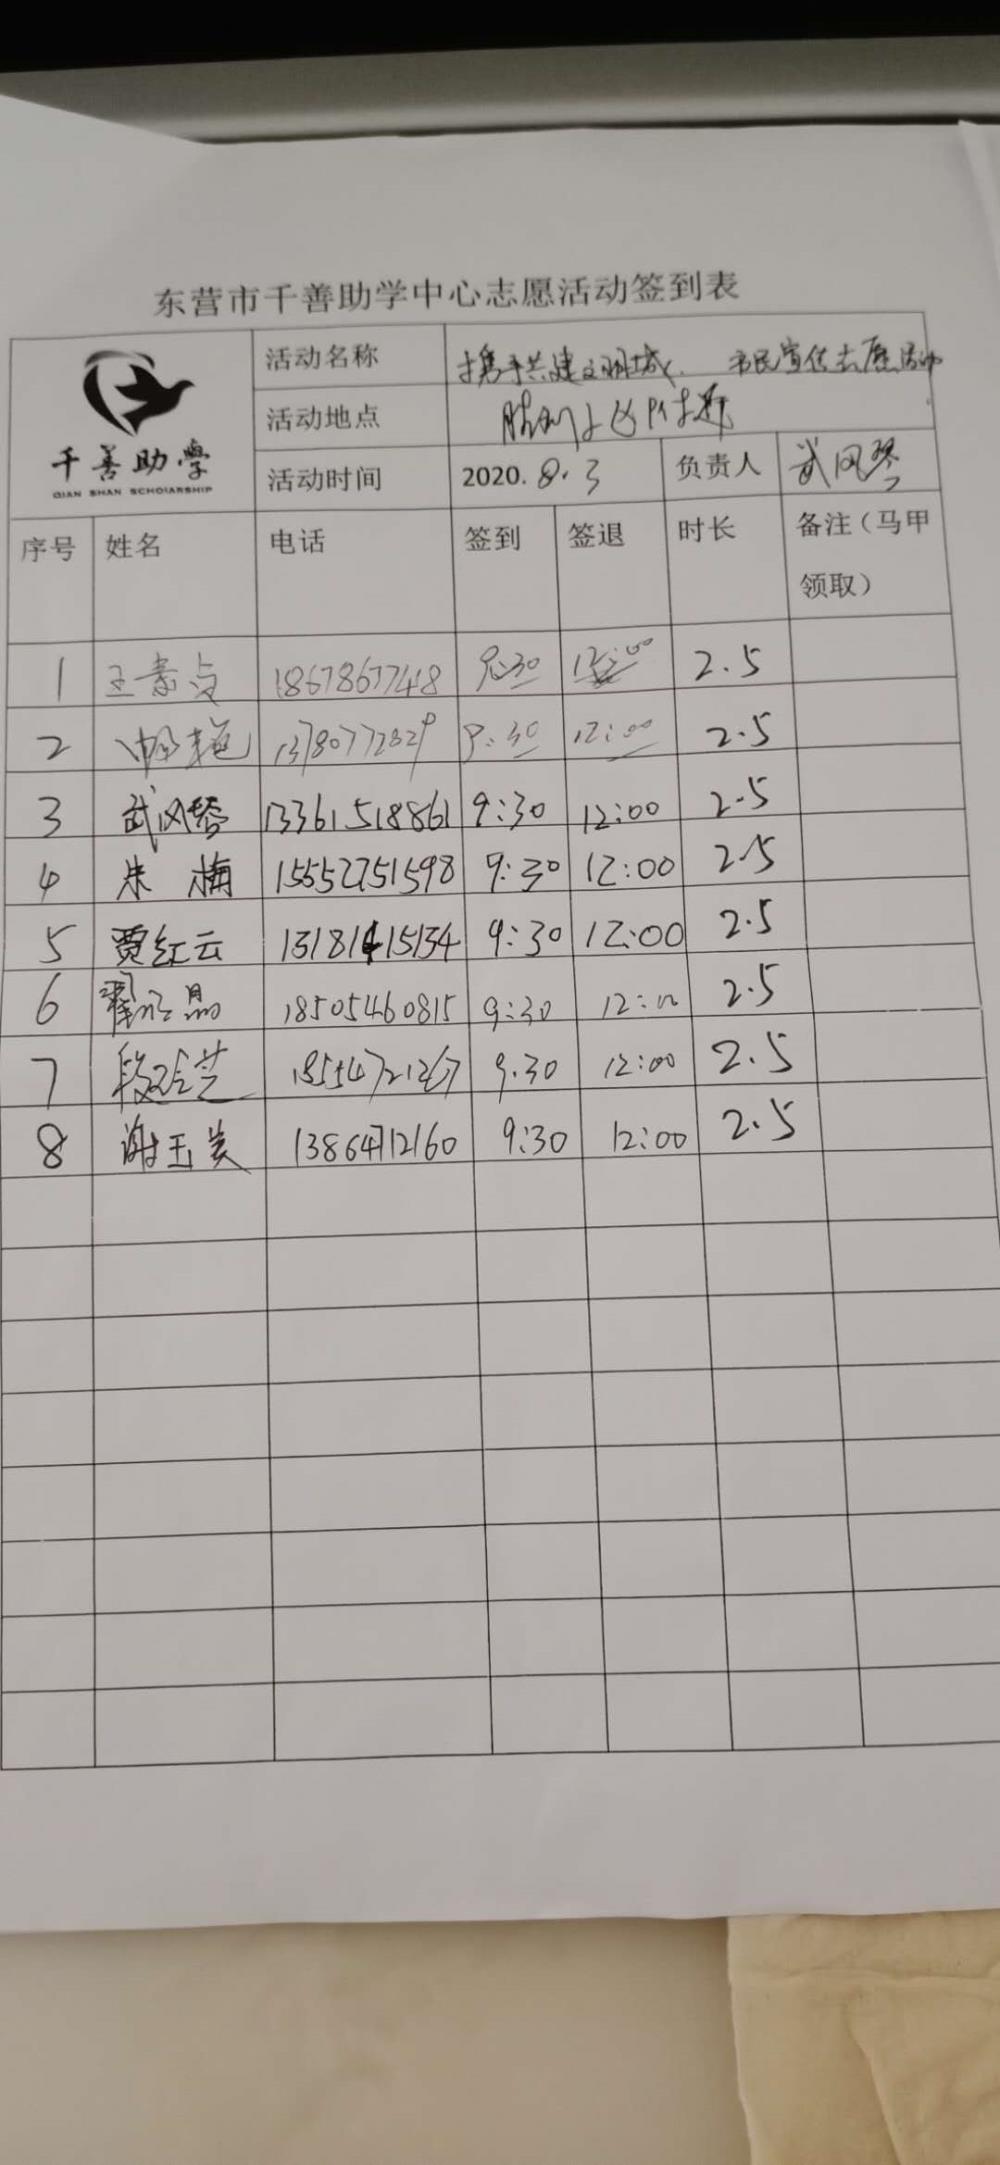 东营市千善助学中心志愿活动签到表
千善助学
QIAN SHAN SCHOLARSHIP
活动名称 携手共建文明城、 市民宣传志愿活动
活动地点 胜利 附近
活动时间 2020.8.3 负责人 武风琴
序号 姓名 电话 签到 签退 时长 备注（马甲领取）
1 王素 18678677448 9:30 12:00 2.5
2 13780772829 9:30 12:00 2.5
3 武风琴 13361518861 9:30 12:00 2.5
4 朱梅 15552751598 9:30 12:00 2.5
5 贾红云 13181415134 9:30 12:00 2.5
6 18505460815 9:30 12:00 2.5
7 段 芝 18554721267 9.30 12:00 2.5
8 谢玉美 13864712160 9:30 12:00 2.5